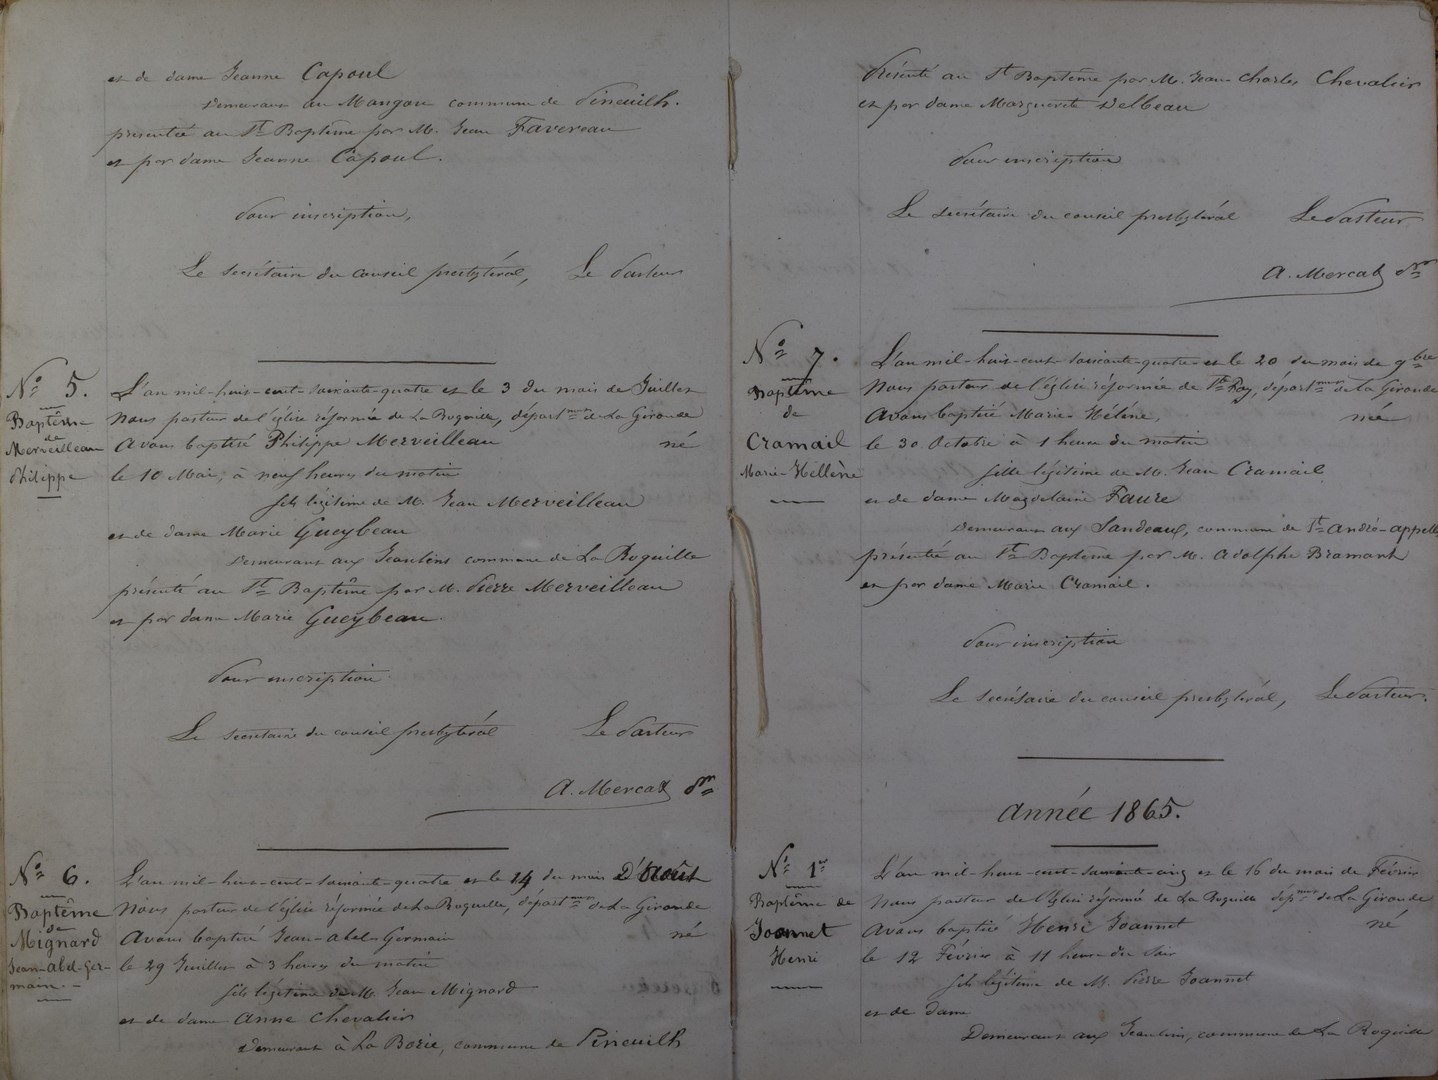 et de dame Jeanne Capoul
Demeurant au Mangou commune de Pineuilh.
présentée au St Baptême par M. Jean Favereau
et par dame Jeanne Capoul.
Pour inscription,
Le secrétaire du conseil presbytéral, Le Pasteur
No 5.
Baptême
de
Merveilleau
Philippe
L'an mil-huit-cent-soixante-quatre et le 3 du mois de Juillet
Nous pasteur de l'église réformée de La Roquille, départmnt de La Gironde
Avons baptisé Philippe Merveilleau né
le 10 Mai, à neuf heures du matin
fils légitime de M. Jean Merveilleau
et de dame Marie Gueybeau
Demeurant aux Jaulins commune de La Roquille
présenté au St Baptême par M. Pierre Merveilleau
et par dame Marie Gueybeau.
Pour inscription
Le secrétaire du conseil presbytéral Le Pasteur
A. Mercat
No 6.
Baptême
de
Mignard
Jean-abel-Ger-
main.
L'an mil-huit-cent-soixante-quatre et le 14 du mois D'Août
Nous pasteur de l'église réformée de La Roquille, départmnt de La Gironde
Avons baptisé Jean-abel-Germain né
le 29 Juillet à 3 heures du matin
fils légitime de M. Jean Mignard
et de dame Anne Chevalier
Demeurant à La Borie, commune de Pineuilh
Présenté au St Baptême par M. Jean-Charles Chevalier
et par dame Marguerite Delbeau
Pour inscription
Le secrétaire du conseil presbytéral Le Pasteur
A. Mercat
No 7.
Baptême
de
Cramail
Marie-Hellène
L'an mil-huit-cent-soixante-quatre et le 20 du mois de 9bre
Nous pasteur de l'église réformée de Ste Foy, départmnt de la Gironde
Avons baptisé Marie-Hélène, née
le 30 Octobre à 1 heure du matin
fille légitime de M. Jean Cramail
et de dame Magdelaine Faure
Demeurant aux Sandeaux, commune de St André-appelles
présentée au St Baptême par M. Adolphe Bramant
et par dame Marie Cramail.
Pour inscription
Le secrétaire du conseil presbytéral, Le Pasteur.
Année 1865.
No 1er
Baptême de
Joannet
Henri
L'an mil-huit-cent-soixante-cinq et le 16 du mois de Février
Nous pasteur de l'église réformée de La Roquille départmnt de La Gironde
Avons baptisé Henri Joannet né
le 12 Février à 11 heures du soir
fils légitime de M. Pierre Joannet
et de dame
Demeurant aux Jaulins, commune de La Roquille